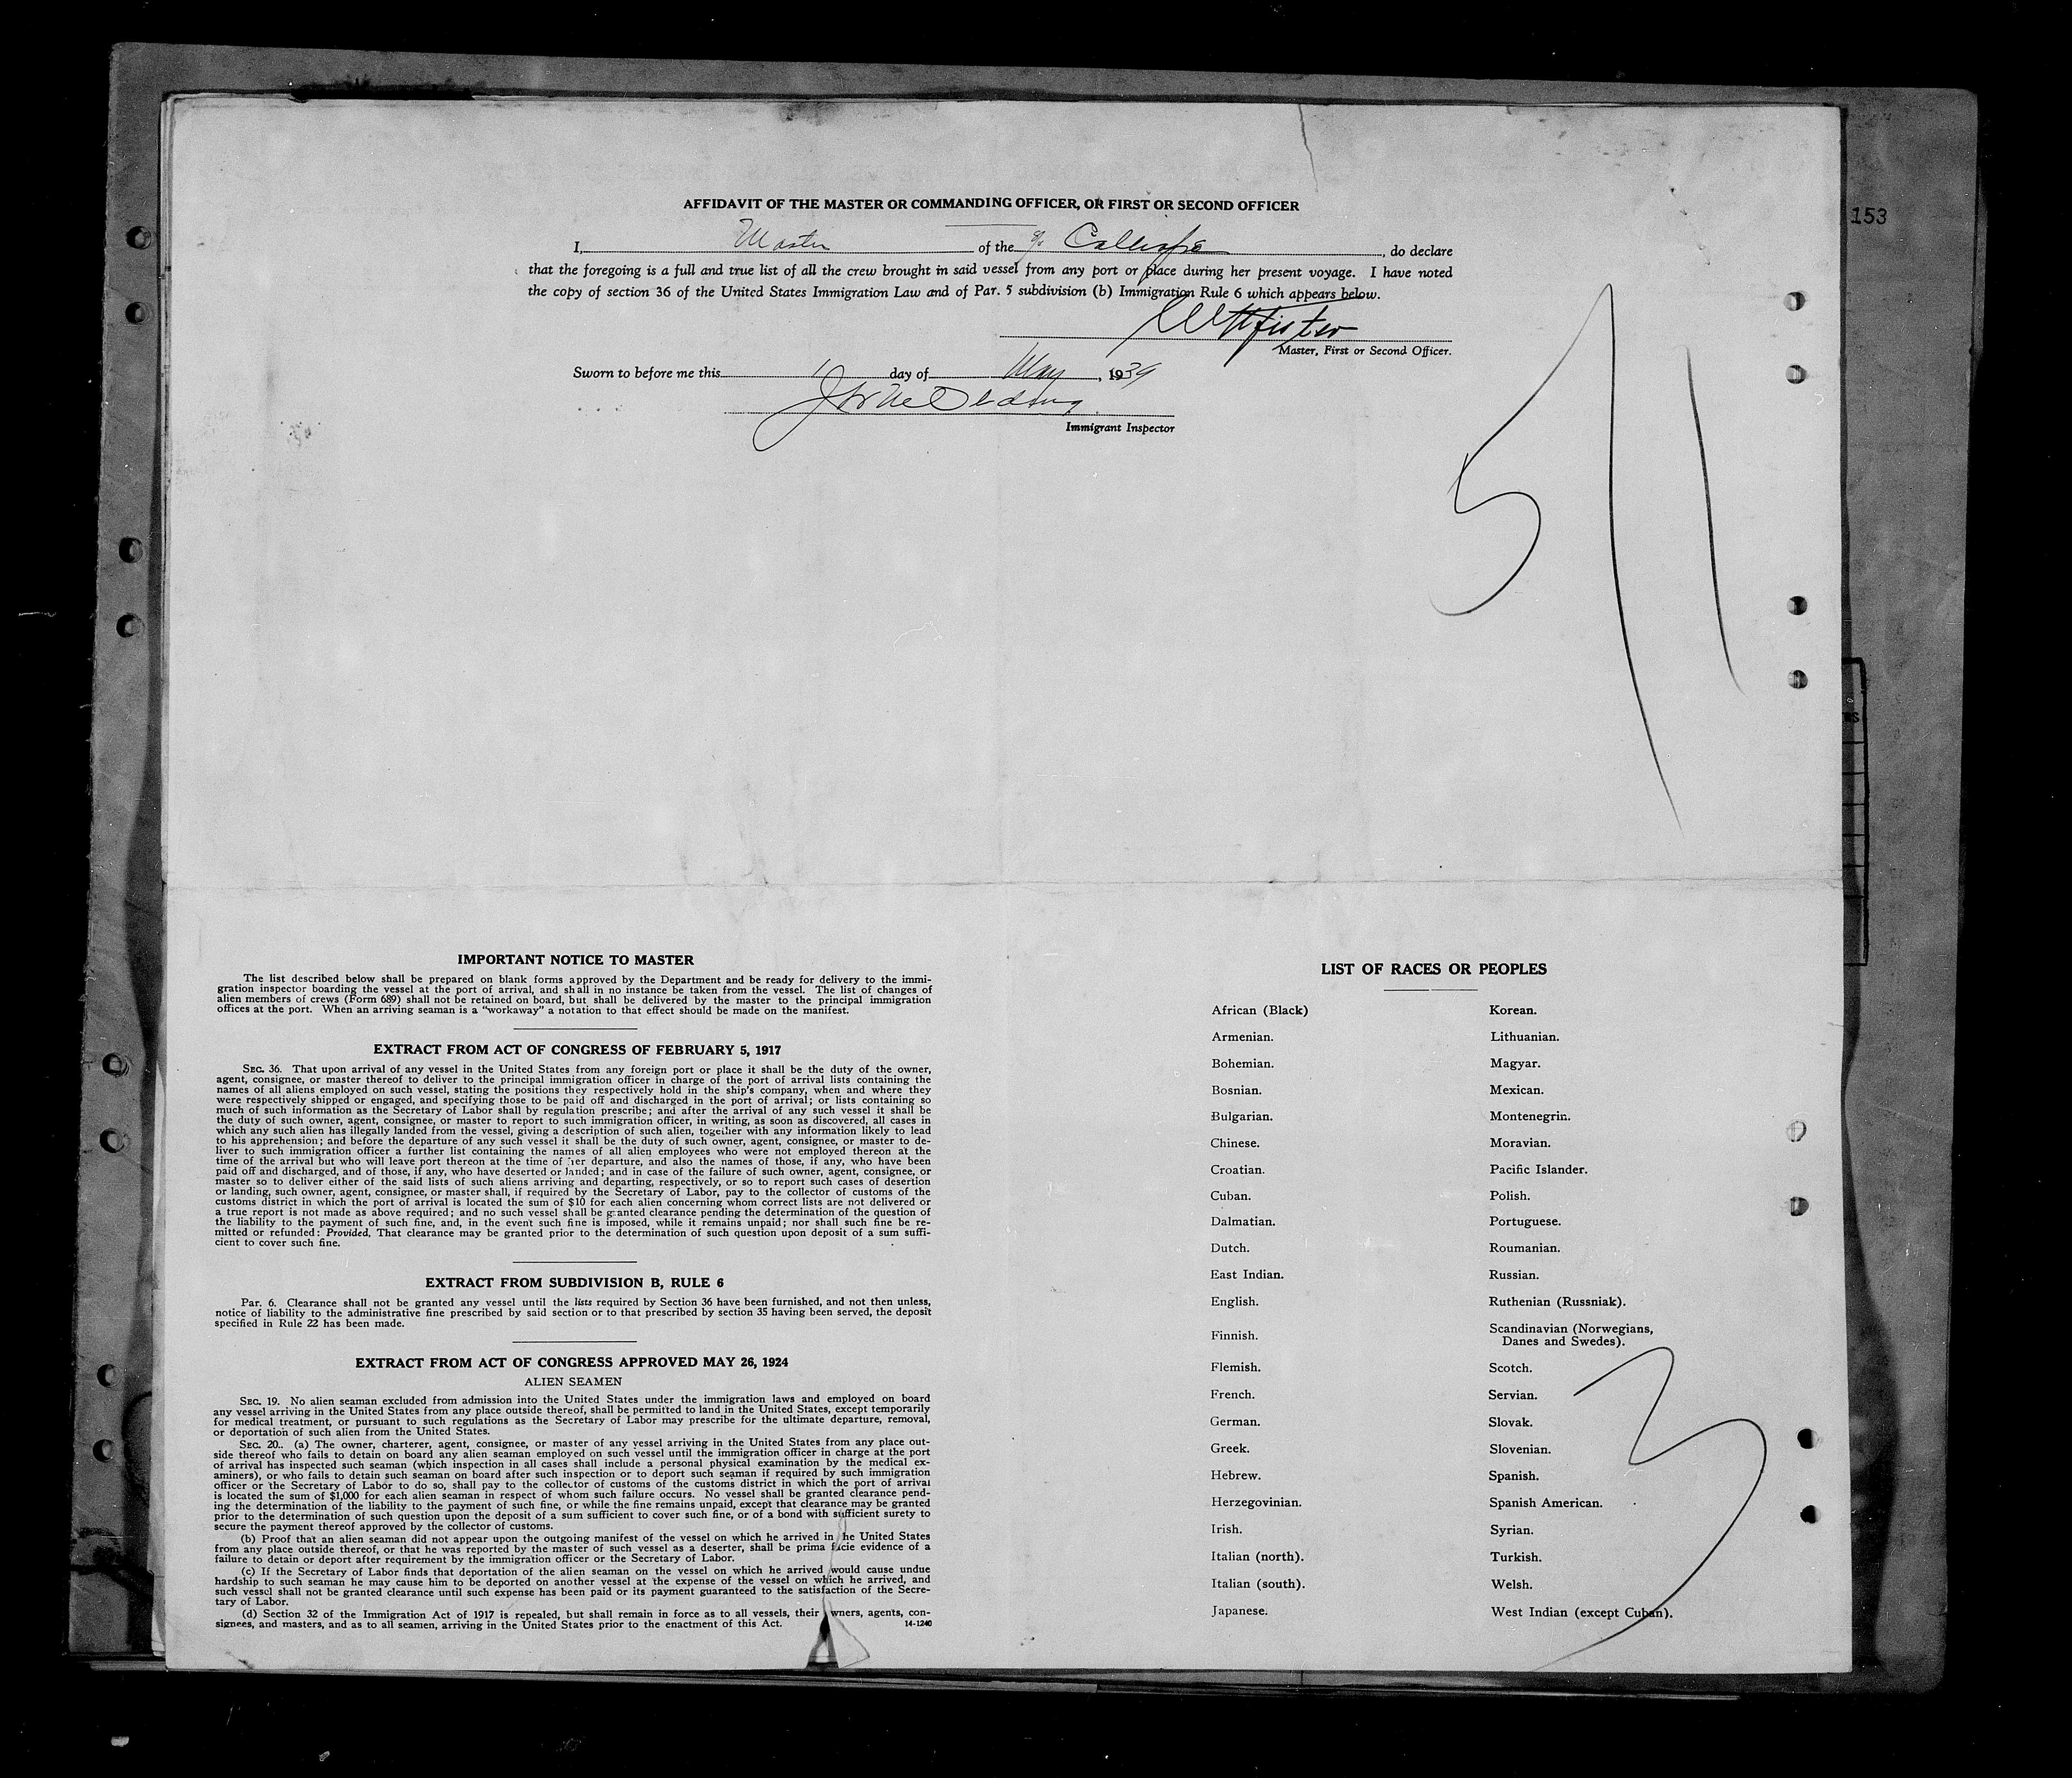 153
AFFIDAVIT OF THE MASTER OR COMMANDING OFFICER, OR FIRST OR SECOND OFFICER
I, Master of the Calliope, do declare
that the foregoing is a full and true list of all the crew brought in said vessel from any port or place during her present voyage. I have noted
the copy of section 36 of the United States Immigration Law and of Par. 5 subdivision (b) Immigration Rule 6 which appears below.
Master, First or Second Officer.
Sworn to before me this 1 day of May, 1939
Immigrant Inspector
51
IMPORTANT NOTICE TO MASTER
The list described below shall be prepared on blank forms approved by the Department and be ready for delivery to the immi-
gration inspector boarding the vessel at the port of arrival, and shall in no instance be taken from the vessel. The list of changes of
alien members of crews (Form 689) shall not be retained on board, but shall be delivered by the master to the principal immigration
offices at the port. When an arriving seaman is a "workaway" a notation to that effect should be made on the manifest.
EXTRACT FROM ACT OF CONGRESS OF FEBRUARY 5, 1917
SEC. 36. That upon arrival of any vessel in the United States from any foreign port or place it shall be the duty of the owner,
agent, consignee, or master thereof to deliver to the principal immigration officer in charge of the port of arrival lists containing the
names of all aliens employed on such vessel, stating the positions they respectively hold in the ship's company, when and where they
were respectively shipped or engaged, and specifying those to be paid off and discharged in the port of arrival; or lists containing so
much of such information as the Secretary of Labor shall by regulation prescribe; and after the arrival of any such vessel it shall be
the duty of such owner, agent, consignee, or master to report to such immigration officer, in writing, as soon as discovered, all cases in
which any such alien has illegally landed from the vessel, giving a description of such alien, together with any information likely to lead
to his apprehension; and before the departure of any such vessel it shall be the duty of such owner, agent, consignee, or master to de-
liver to such immigration officer a further list containing the names of all alien employees who were not employed thereon at the
time of the arrival but who will leave port thereon at the time of her departure, and also the names of those, if any, who have been
paid off and discharged, and of those, if any, who have deserted or landed; and in case of the failure of such owner, agent, consignee, or
master so to deliver either of the said lists of such aliens arriving and departing, respectively, or so to report such cases of desertion
or landing, such owner, agent, consignee, or master shall, if required by the Secretary of Labor, pay to the collector of customs of the
customs district in which the port of arrival is located the sum of $10 for each alien concerning whom correct lists are not delivered or
a true report is not made as above required; and no such vessel shall be granted clearance pending the determination of the question of
the liability to the payment of such fine, and, in the event such fine is imposed, while it remains unpaid; nor shall such fine be re-
mitted or refunded: Provided, That clearance may be granted prior to the determination of such question upon deposit of a sum suffi-
cient to cover such fine.
EXTRACT FROM SUBDIVISION B, RULE 6
Par. 6. Clearance shall not be granted any vessel until the lists required by Section 36 have been furnished, and not then unless,
notice of liability to the administrative fine prescribed by said section or to that prescribed by section 35 having been served, the deposit
specified in Rule 22 has been made.
EXTRACT FROM ACT OF CONGRESS APPROVED MAY 26, 1924
ALIEN SEAMEN
SEC. 19. No alien seaman excluded from admission into the United States under the immigration laws and employed on board
any vessel arriving in the United States from any place outside thereof, shall be permitted to land in the United States, except temporarily
for medical treatment, or pursuant to such regulations as the Secretary of Labor may prescribe for the ultimate departure, removal,
or deportation of such alien from the United States.
SEC. 20.. (a) The owner, charterer, agent, consignee, or master of any vessel arriving in the United States from any place out-
side thereof who fails to detain on board any alien seaman employed on such vessel until the immigration officer in charge at the port
of arrival has inspected such seaman (which inspection in all cases shall include a personal physical examination by the medical ex-
aminers), or who fails to detain such seaman on board after such inspection or to deport such seaman if required by such immigration
officer or the Secretary of Labor to do so, shall pay to the collector of customs of the customs district in which the port of arrival
is located the sum of $1,000 for each alien seaman in respect of whom such failure occurs. No vessel shall be granted clearance pend-
ing the determination of the liability to the payment of such fine, or while the fine remains unpaid, except that clearance may be granted
prior to the determination of such question upon the deposit of a sum sufficient to cover such fine, or of a bond with sufficient surety to
secure the payment thereof approved by the collector of customs.
(b) Proof that an alien seaman did not appear upon the outgoing manifest of the vessel on which he arrived in the United States
from any place outside thereof, or that he was reported by the master of such vessel as a deserter, shall be prima facie evidence of a
failure to detain or deport after requirement by the immigration officer or the Secretary of Labor.
(c) If the Secretary of Labor finds that deportation of the alien seaman on the vessel on which he arrived would cause undue
hardship to such seaman he may cause him to be deported on another vessel at the expense of the vessel on which he arrived, and
such vessel shall not be granted clearance until such expense has been paid or its payment guaranteed to the satisfaction of the Secre-
tary of Labor.
(d) Section 32 of the Immigration Act of 1917 is repealed, but shall remain in force as to all vessels, their owners, agents, con-
signees, and masters, and as to all seamen, arriving in the United States prior to the enactment of this Act.
14-1240
LIST OF RACES OR PEOPLES
African (Black)
Armenian.
Bohemian.
Bosnian.
Bulgarian.
Chinese.
Croatian.
Cuban.
Dalmatian.
Dutch.
East Indian.
English.
Finnish.
Flemish.
French.
German.
Greek.
Hebrew.
Herzegovinian.
Irish.
Italian (north).
Italian (south).
Japanese.
Korean.
Lithuanian.
Magyar.
Mexican.
Montenegrin.
Moravian.
Pacific Islander.
Polish.
Portuguese.
Roumanian.
Russian.
Ruthenian (Russniak).
Scandinavian (Norwegians,
Danes and Swedes).
Scotch.
Servian.
Slovak.
Slovenian.
Spanish.
Spanish American.
Syrian.
Turkish.
Welsh.
West Indian (except Cuban).
3